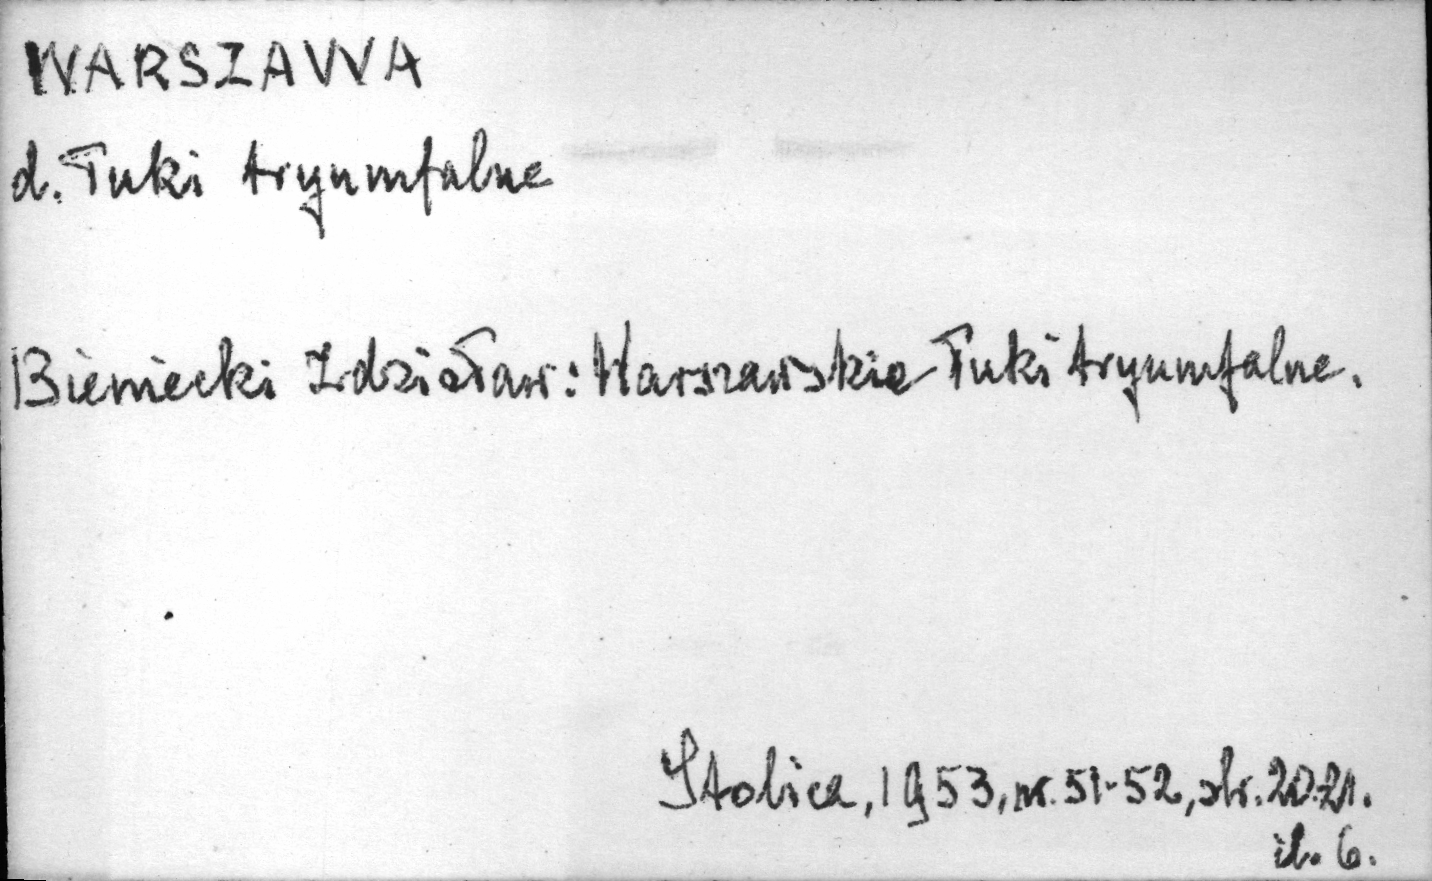 WARSZAWA
d. Łuki tryumfalne
Bieniecki Zdzisław: Warszawskie łuki tryumfalne.
Stolica, 1953, nr. 51-52, str. 20-21.
il. 6.